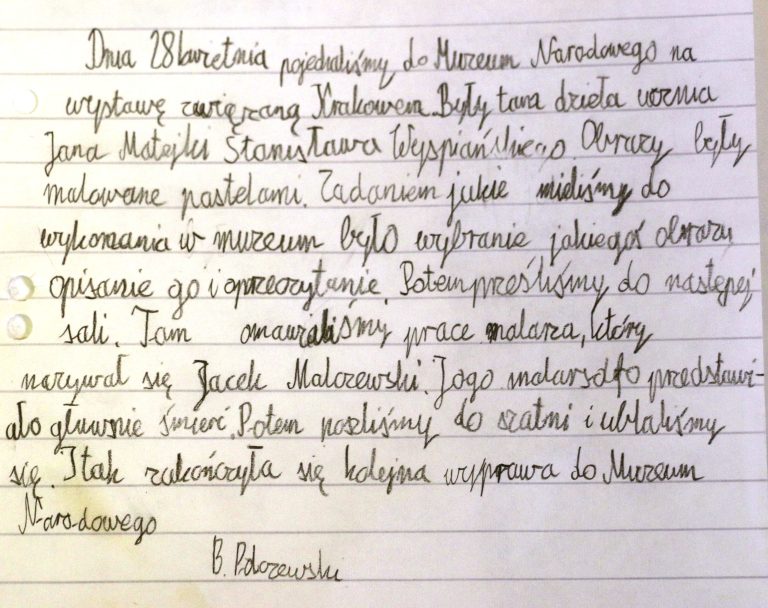 Dnia 28 kwietnia pojechaliśmy do Muzeum Narodowego na
wystawę związaną Krakowem. Były tam dzieła ucznia
Jana Matejki Stanisława Wyspiańskiego. Obrazy były
malowane pastelami. Zadaniem jakie mieliśmy do
wykonania w muzeum było wybranie jakiegoś obrazu
opisanie go i oprzeczytanie. Potem prześliśmy do nastepej
sali. Tam omawialiśmy prace malarza, który
nazywał się Jacek Malczewski. Jogo malarsdfo przedstawi-
ało głuwnie śmierć. Potem poszliśmy do szatni i ubraliśmy
się. I tak zakończyła się kolejna wyprawa do Muzeum
Narodowego
B.